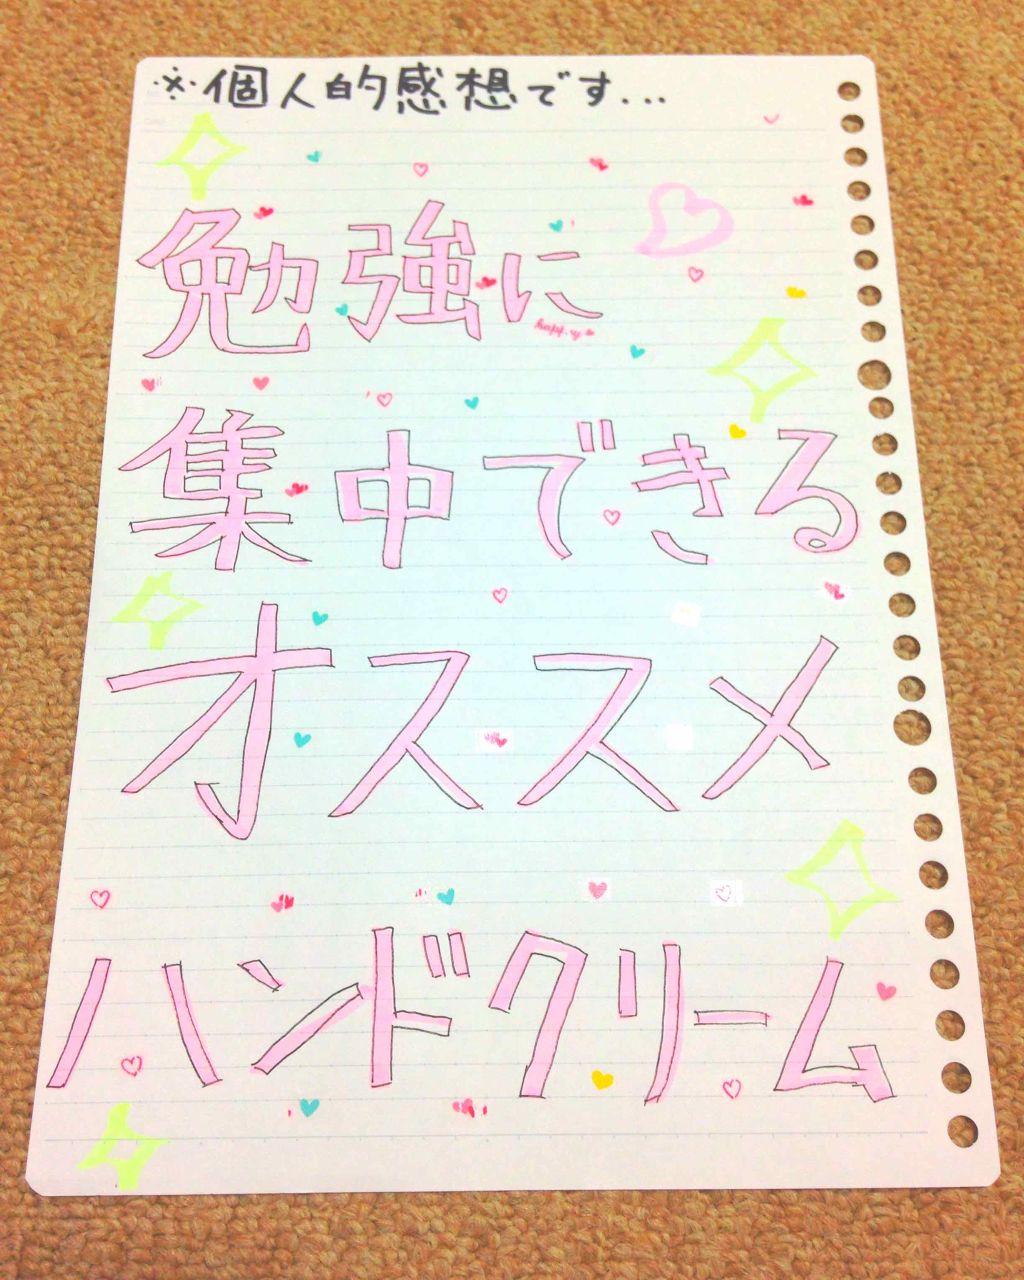 ※個人的感想です...
勉強に
happy
集中できる
オススメ
ハンドクリーム